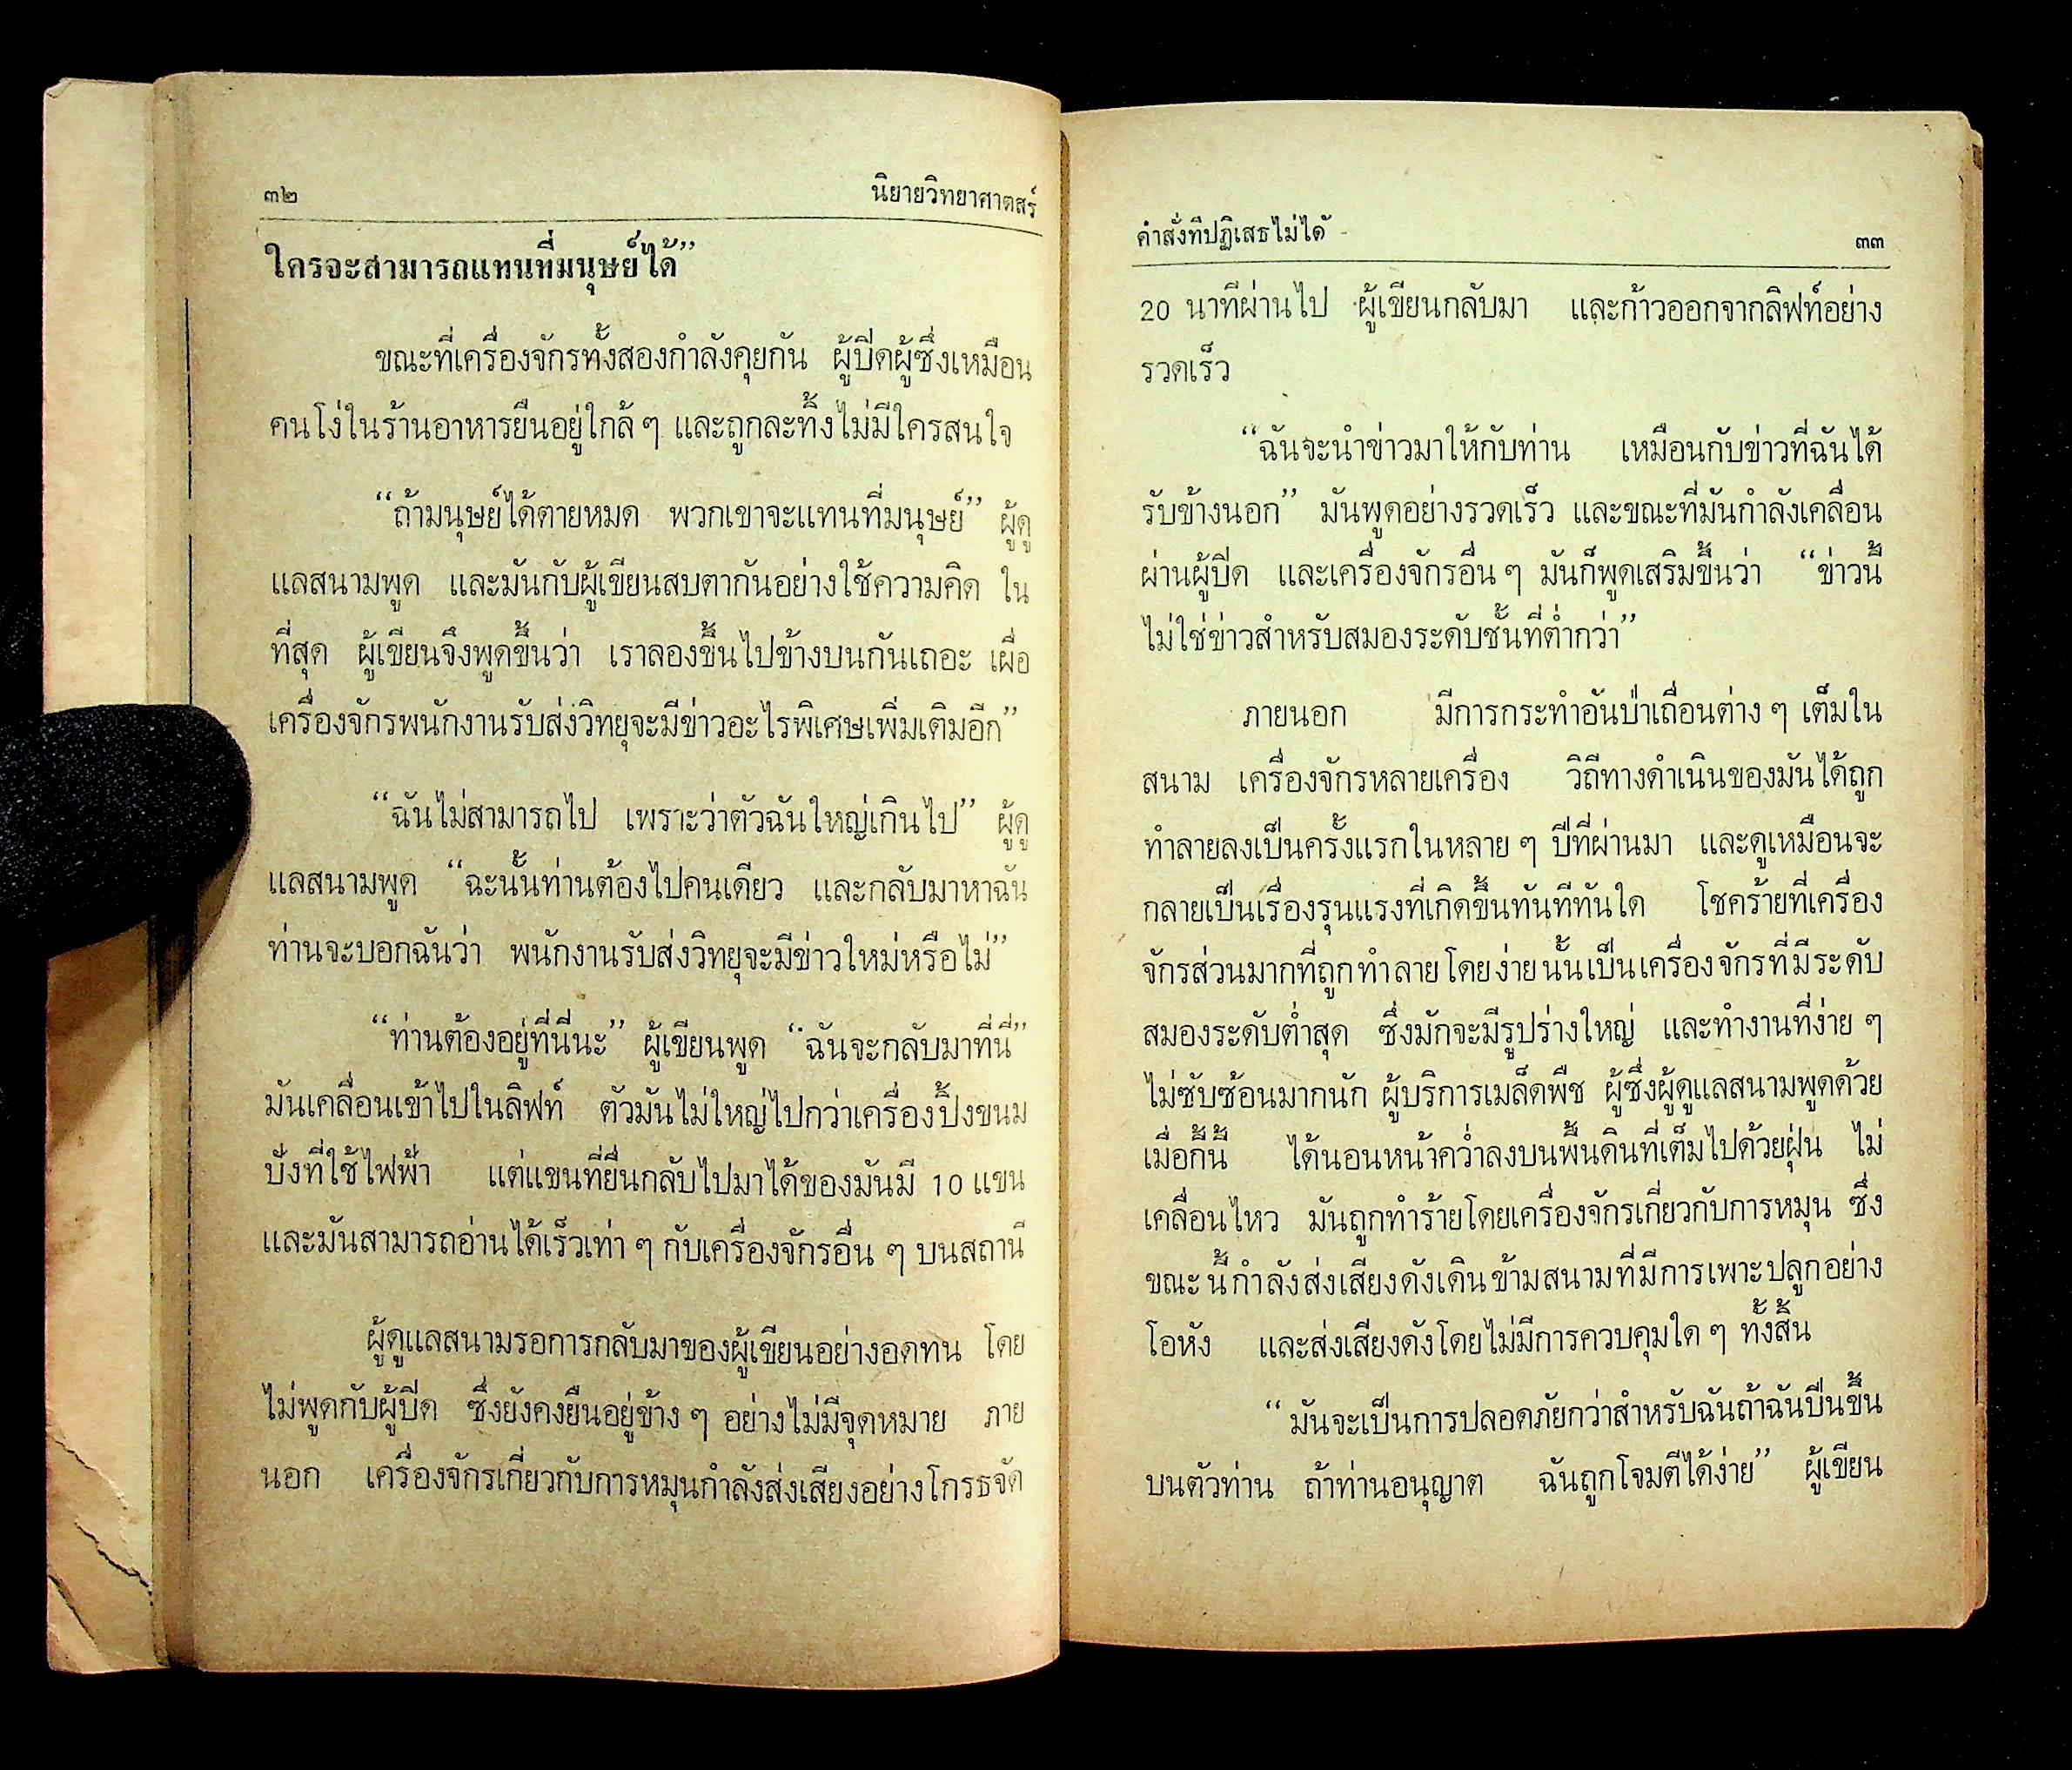 ๓๒ นิยายวิทยาศาตสร์
ใครจะสามารถแทนที่มนุษย์ได้”
ขณะที่เครื่องจักรทั้งสองกำลังคุยกัน ผู้ปีดผู้ซึ่งเหมือน
คนโง่ในร้านอาหารยืนอยู่ใกล้ ๆ และถูกละทิ้งไม่มีใครสนใจ
“ถ้ามนุษย์ได้ตายหมด พวกเขาจะแทนที่มนุษย์” ผู้ดู
แลสนามพูด และมันกับผู้เขียนสบตากันอย่างใช้ความคิด ใน
ที่สุด ผู้เขียนจึงพูดขึ้นว่า เราลองขึ้นไปข้างบนกันเถอะ เผื่อ
เครื่องจักรพนักงานรับส่งวิทยุจะมีข่าวอะไรพิเศษเพิ่มเติมอีก”
“ฉันไม่สามารถไป เพราะว่าตัวฉันใหญ่เกินไป” ผู้ดู
แลสนามพูด “ฉะนั้นท่านต้องไปคนเดียว และกลับมาหาฉัน
ท่านจะบอกฉันว่า พนักงานรับส่งวิทยุจะมีข่าวใหม่หรือไม่”
“ท่านต้องอยู่ที่นี่นะ” ผู้เขียนพูด “ฉันจะกลับมาที่นี่”
มันเคลื่อนเข้าไปในลิฟท์ ตัวมันไม่ใหญ่ไปกว่าเครื่องปิ้งขนม
ปังที่ใช้ไฟฟ้า แต่แขนที่ยื่นกลับไปมาได้ของมันมี 10 แขน
และมันสามารถอ่านได้เร็วเท่า ๆ กับเครื่องจักรอื่น ๆ บนสถานี
ผู้ดูแลสนามรอการกลับมาของผู้เขียนอย่างอดทน โดย
ไม่พูดกับผู้ปีด ซึ่งยังคงยืนอยู่ข้าง ๆ อย่างไม่มีจุดหมาย ภาย
นอก เครื่องจักรเกี่ยวกับการหมุนกำลังส่งเสียงอย่างโกรธจัด
คำสั่งที่ปฏิเสธไม่ได้ ๓๓
20 นาทีผ่านไป ผู้เขียนกลับมา และก้าวออกจากลิฟท์อย่าง
รวดเร็ว
“ฉันจะนำข่าวมาให้กับท่าน เหมือนกับข่าวที่ฉันได้
รับข้างนอก” มันพูดอย่างรวดเร็ว และขณะที่มันกำลังเคลื่อน
ผ่านผู้ปีด และเครื่องจักรอื่น ๆ มันก็พูดเสริมขึ้นว่า “ข่าวนี้
ไม่ใช่ข่าวสำหรับสมองระดับชั้นที่ต่ำกว่า”
ภายนอก มีการกระทำอันป่าเถื่อนต่าง ๆ เต็มใน
สนาม เครื่องจักรหลายเครื่อง วิถีทางดำเนินของมันได้ถูก
ทำลายลงเป็นครั้งแรกในหลาย ๆ ปีที่ผ่านมา และดูเหมือนจะ
กลายเป็นเรื่องรุนแรงที่เกิดขึ้นทันทีทันใด โชคร้ายที่เครื่อง
จักรส่วนมากที่ถูกทำลายโดยง่ายนั้นเป็นเครื่องจักรที่มีระดับ
สมองระดับต่ำสุด ซึ่งมักจะมีรูปร่างใหญ่ และทำงานที่ง่าย ๆ
ไม่ซับซ้อนมากนัก ผู้บริการเมล็ดพืช ผู้ซึ่งผู้ดูแลสนามพูดด้วย
เมื่อกี้นี้ ได้นอนหน้าคว่ำลงบนพื้นดินที่เต็มไปด้วยฝุ่น ไม่
เคลื่อนไหว มันถูกทำร้ายโดยเครื่องจักรเกี่ยวกับการหมุน ซึ่ง
ขณะนี้กำลังส่งเสียงดังเดินข้ามสนามที่มีการเพาะปลูกอย่าง
โอหัง และส่งเสียงดังโดยไม่มีการควบคุมใด ๆ ทั้งสิ้น
“มันจะเป็นการปลอดภัยกว่าสำหรับฉันถ้าฉันปีนขึ้น
บนตัวท่าน ถ้าท่านอนุญาต ฉันถูกโจมตีได้ง่าย” ผู้เขียน